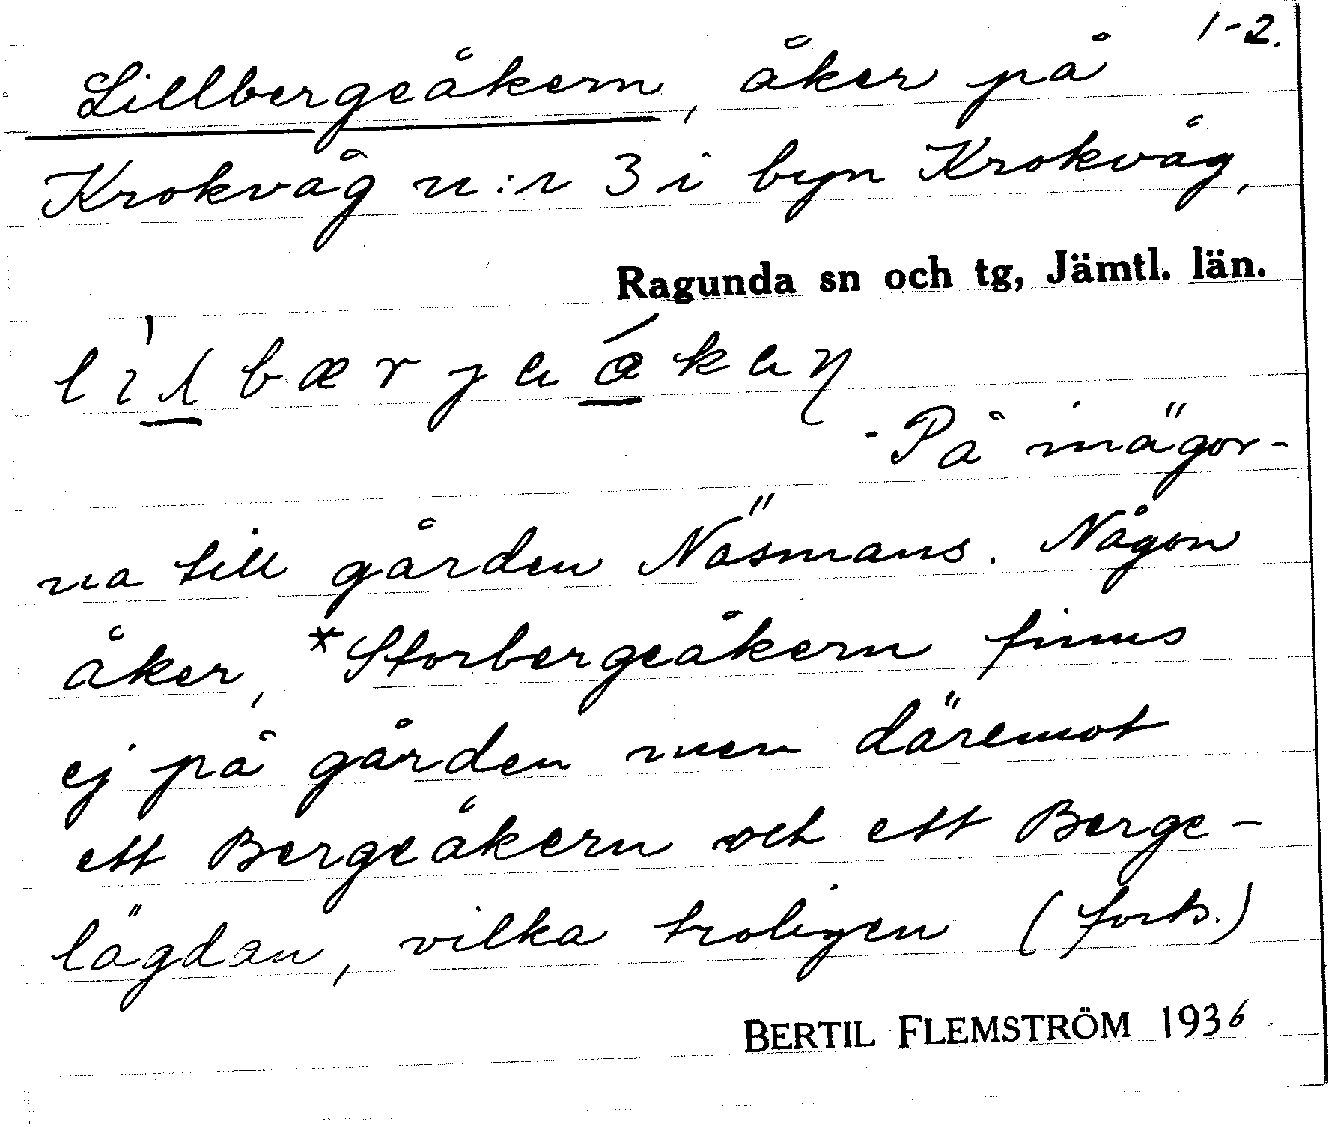 1-2.
Lillbergeåkern, åker på
Krokvåg n:r 3 i byn Krokvåg,
Ragunda sn och tg, Jämtl. län.
- På inägor-
na till gården Näsmans. Någon
åker, *Storbergeåkern finns
ej på gården men däremot
ett Bergeåkern och ett Berge-
lägdan, vilka troligen (forts.)
BERTIL FLEMSTRÖM 1936